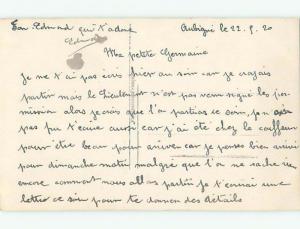 Ton Edmond qui t'adore
Edmond
Aubigné le 22. 8. 20
Ma petite Germaine
Je ne t'ai pas écris hier au soir car je croyais
partir mais le lieutenant n'est pas venu signé les per-
mission alors je crois que l'on partiras ce soir, j'en ai
pas pu t'écrire aussi car j'ai été chez le coiffeur
pour être beau pour arriver car je penses bien arriver
pour dimanche matin malgré que l'on ne sache rien
encore comment nous allons partir je t'enverrai une
lettre ce soir pour te donner des détails